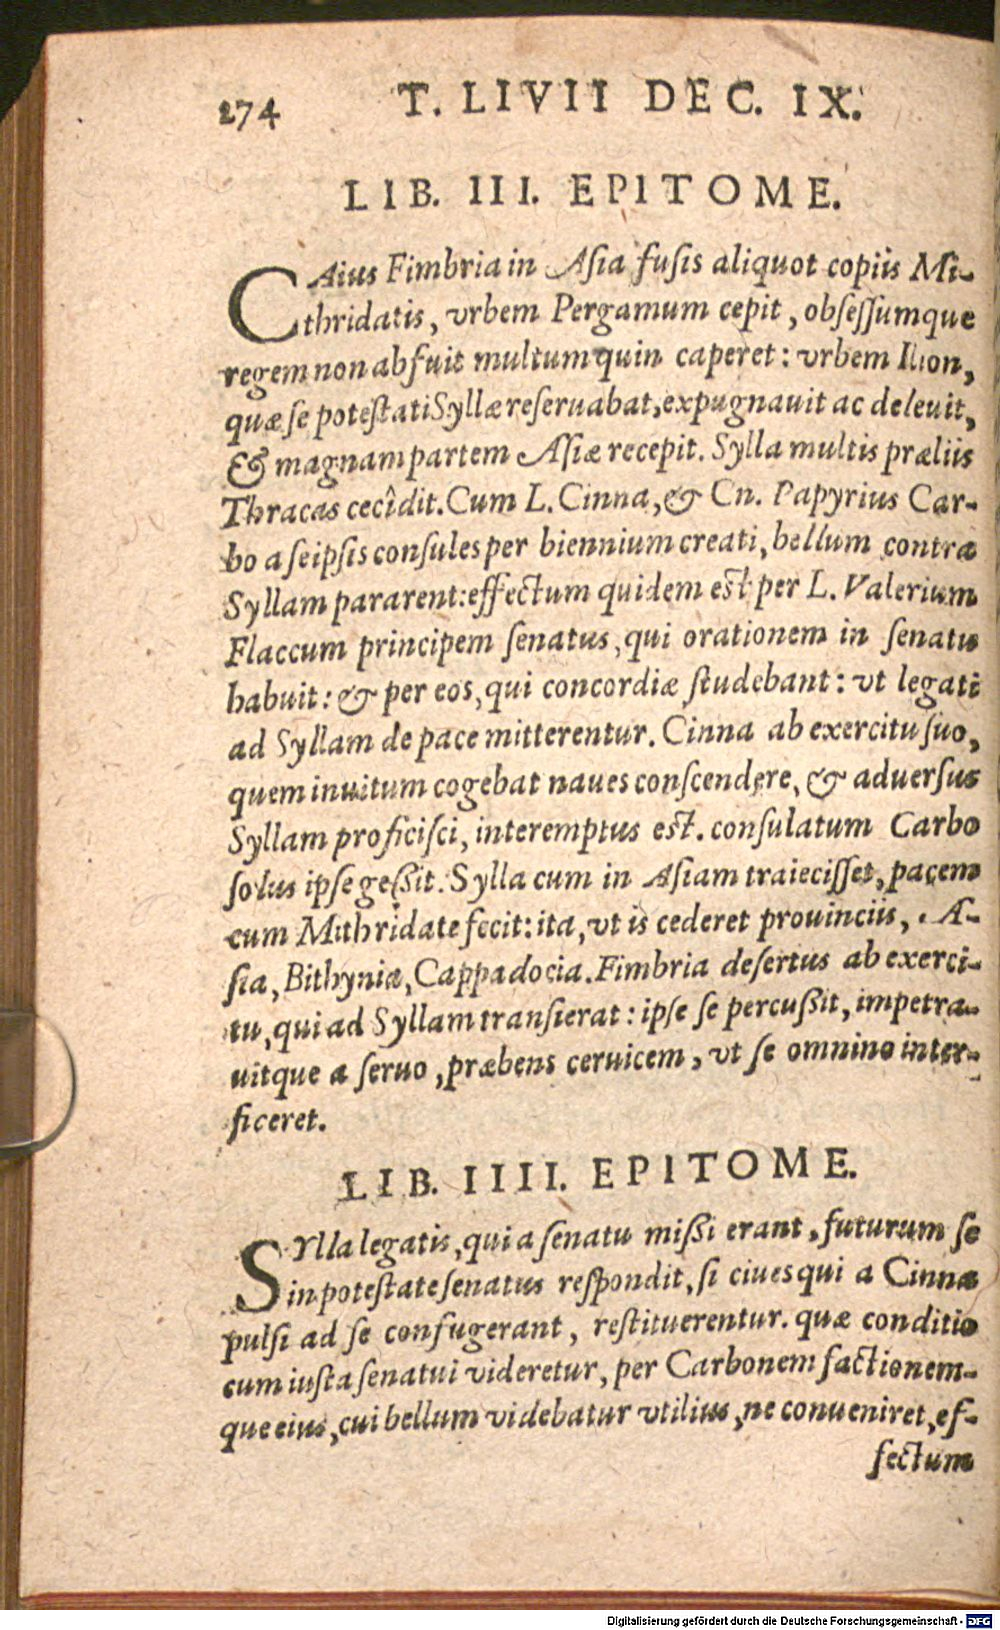 274 T. LIVII DEC. IX.
LIB. III. EPITOME.
CAius Fimbria in Asia fusis aliquot copiis Mi-
thridatis, vrbem Pergamum cepit, obsessumque
regem non abfuit multum quin caperet: vrbem Ilion,
quæ se potestati Syllæ reseruabat, expugnauit ac deleuit,
& magnam partem Asiæ recepit. Sylla multis præliis
Thracas cecîdit. Cum L. Cinna, & Cn. Papyrius Car-
bo a seipsis consules per biennium creati, bellum contra
Syllam pararent: effectum quidem est per L. Valerium
Flaccum principem senatus, qui orationem in senatu
habuit: & per eos, qui concordiæ studebant: vt legati
ad Syllam de pace mitterentur. Cinna ab exercitu suo,
quem inuitum cogebat naues conscendere, & aduersus
Syllam proficisci, interemptus est. consulatum Carbo
solus ipse geßit. Sylla cum in Asiam traiecisset, pacem
cum Mithridate fecit: ita, vt is cederet prouinciis, A-
sia, Bithynia, Cappadocia. Fimbria desertus ab exerci-
tu, qui ad Syllam transierat: ipse se percußit, impetra-
uitque a seruo, præbens ceruicem, vt se omnino inter-
ficeret.
LIB. IIII. EPITOME.
SYlla legatis, qui a senatu mißi erant, futurum se
in potestate senatus respondit, si ciues qui a Cinna
pulsi ad se confugerant, restituerentur. quæ conditio
cum iusta senatui videretur, per Carbonem factionem-
que eius, cui bellum videbatur vtilius, ne conueniret, ef-
fectum
Digitalisierung gefördert durch die Deutsche Forschungsgemeinschaft - DFG